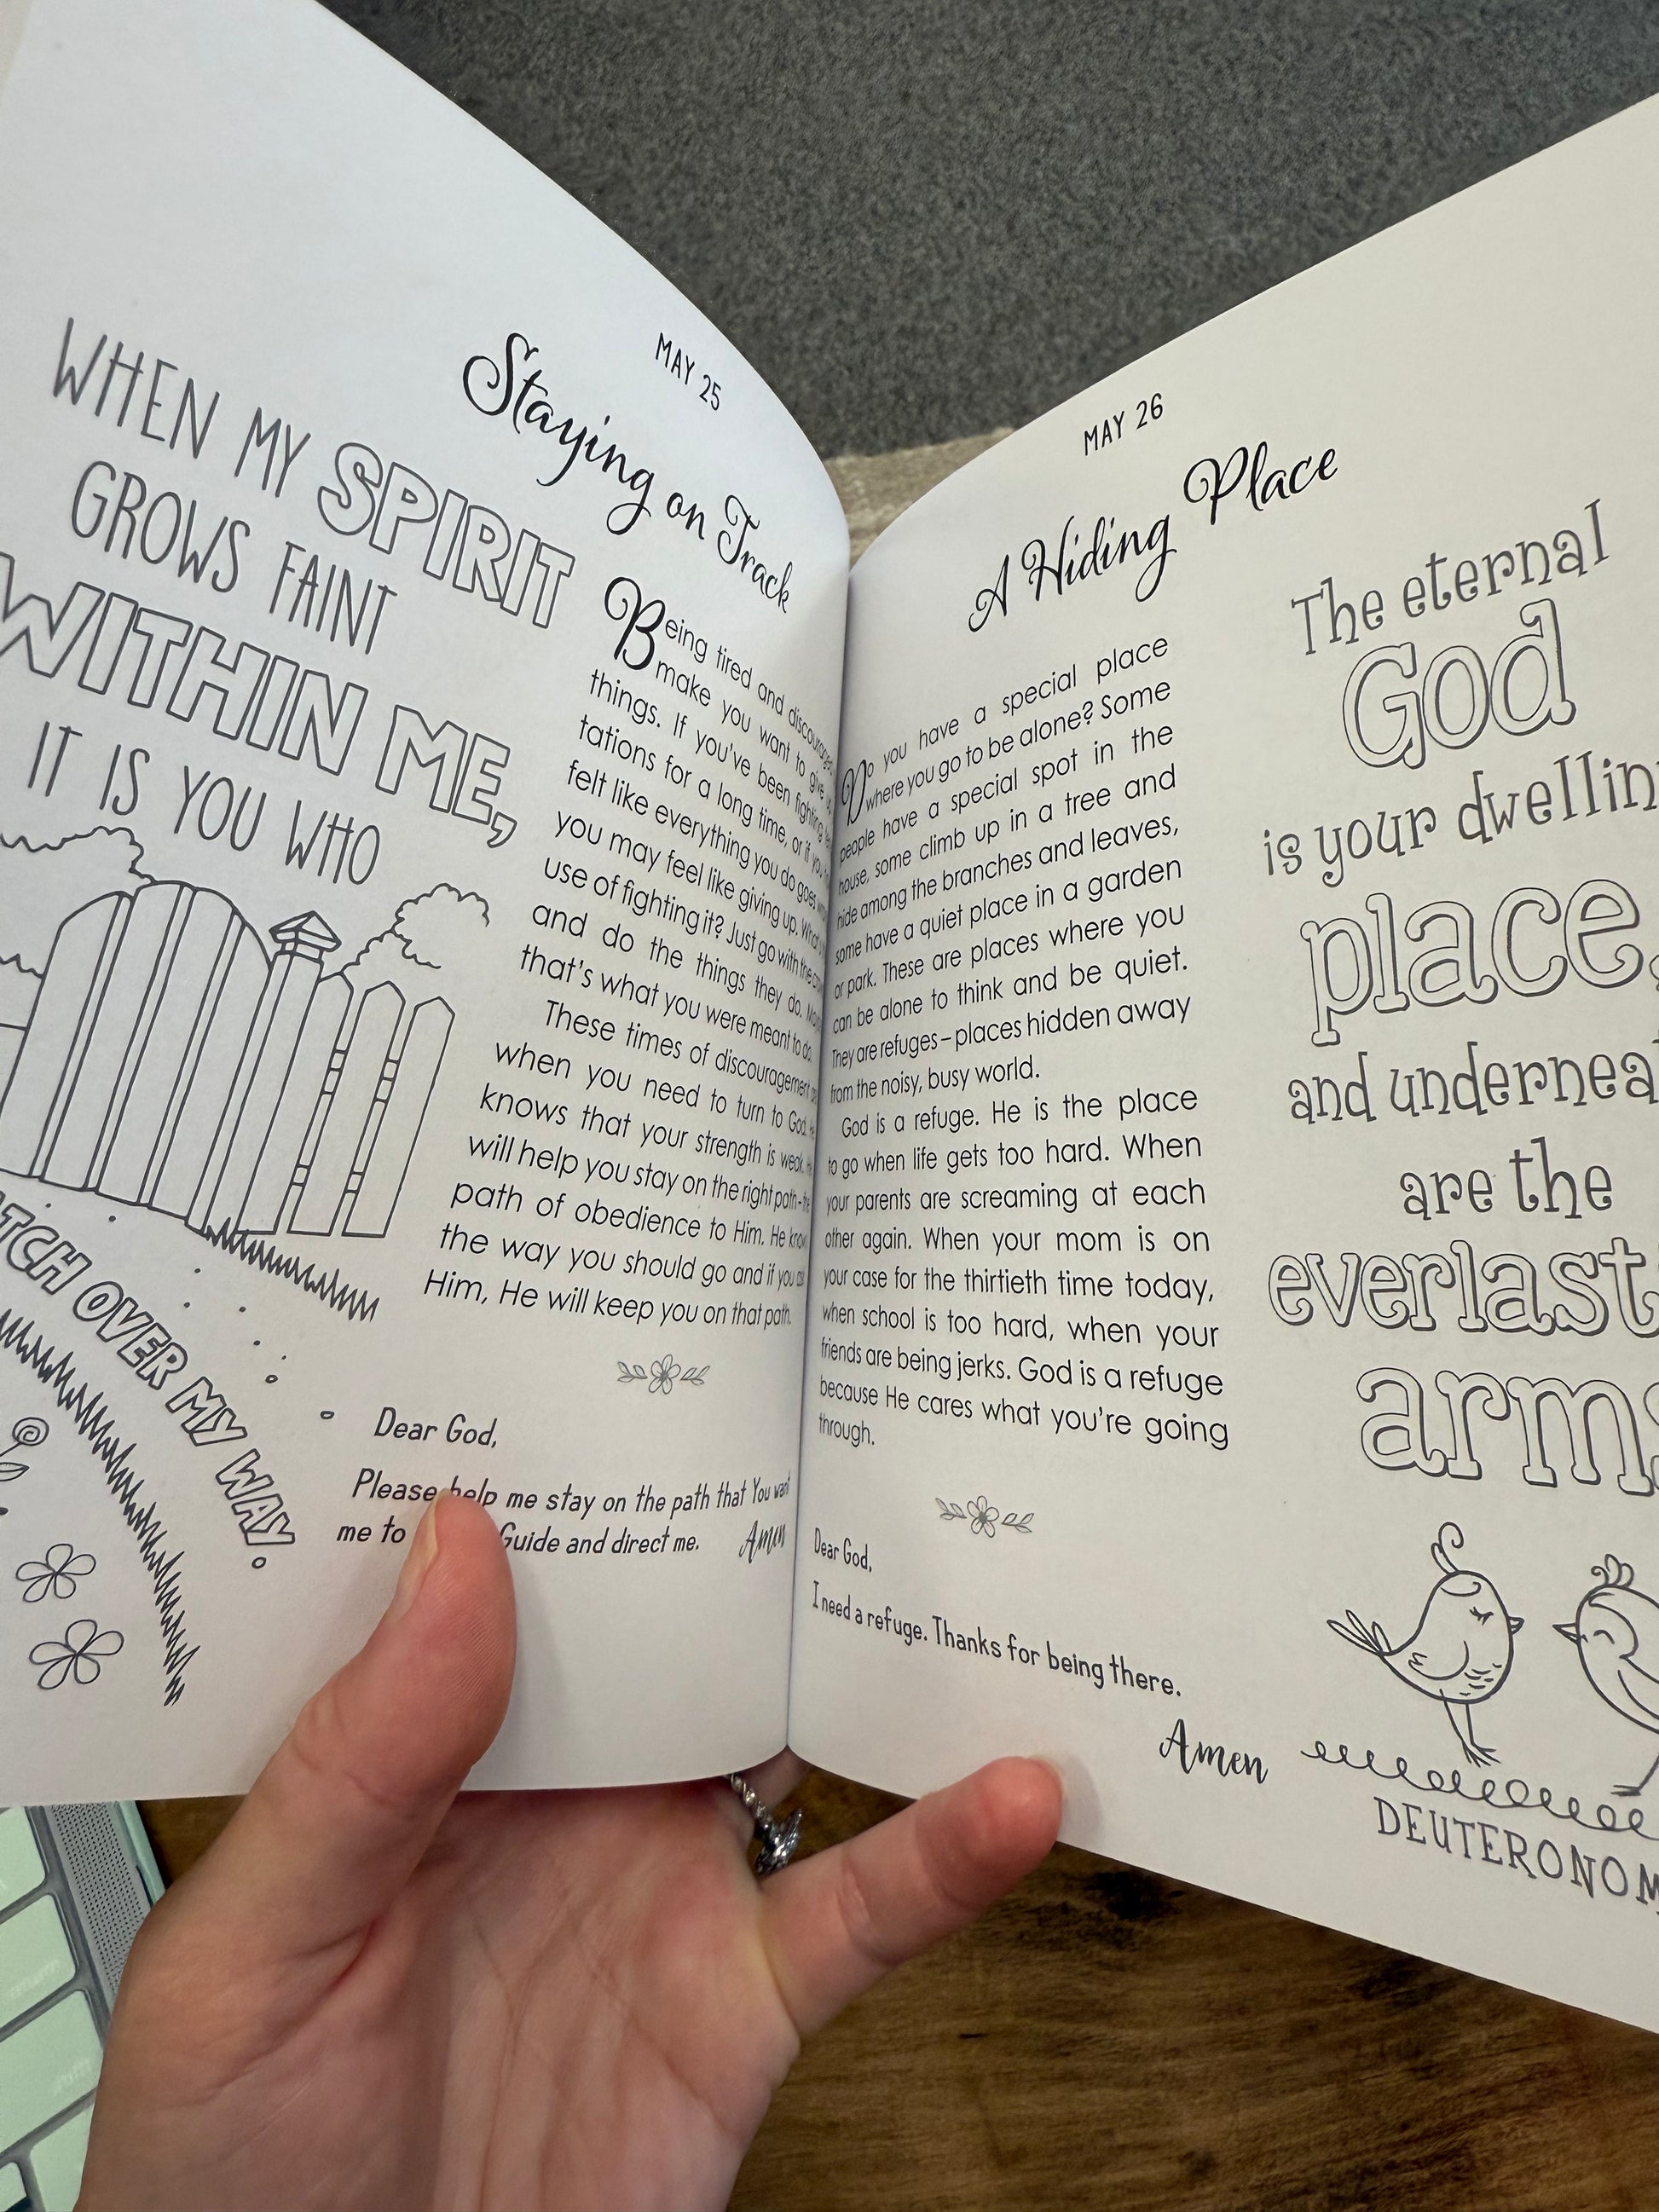 WHEN MY SPIRIT
GROWS FAINT
WITHIN ME,
IT IS YOU WHO
ATCH OVER MY WAY.
MAY 25
Staying on Track
Being tired and discouraged
make you want to give
things. If you've been fighting
tations for a long time, or if
felt like everything you do goes
you may feel like giving up. What
use of fighting it? Just go with the
and do the things they do.
that's what you were meant to do.
These times of discouragement
when you need to turn to God.
knows that your strength is weak.
will help you stay on the right path–
path of obedience to Him. He know
the way you should go and if you
Him, He will keep you on that path.
Dear God,
Please help me stay on the path that You want
me to Guide and direct me. Amen
MAY 26
A Hiding Place
Do you have a special place
where you go to be alone? Some
people have a special spot in the
house, some climb up in a tree and
hide among the branches and leaves,
some have a quiet place in a garden
or park. These are places where you
can be alone to think and be quiet.
They are refuges – places hidden away
from the noisy, busy world.
God is a refuge. He is the place
to go when life gets too hard. When
your parents are screaming at each
other again. When your mom is on
your case for the thirtieth time today,
when school is too hard, when your
friends are being jerks. God is a refuge
because He cares what you're going
through.
Dear God,
I need a refuge. Thanks for being there.
Amen
The eternal
God
is your dwellin
place,
and underneat
are the
everlast
arms
DEUTERONOM